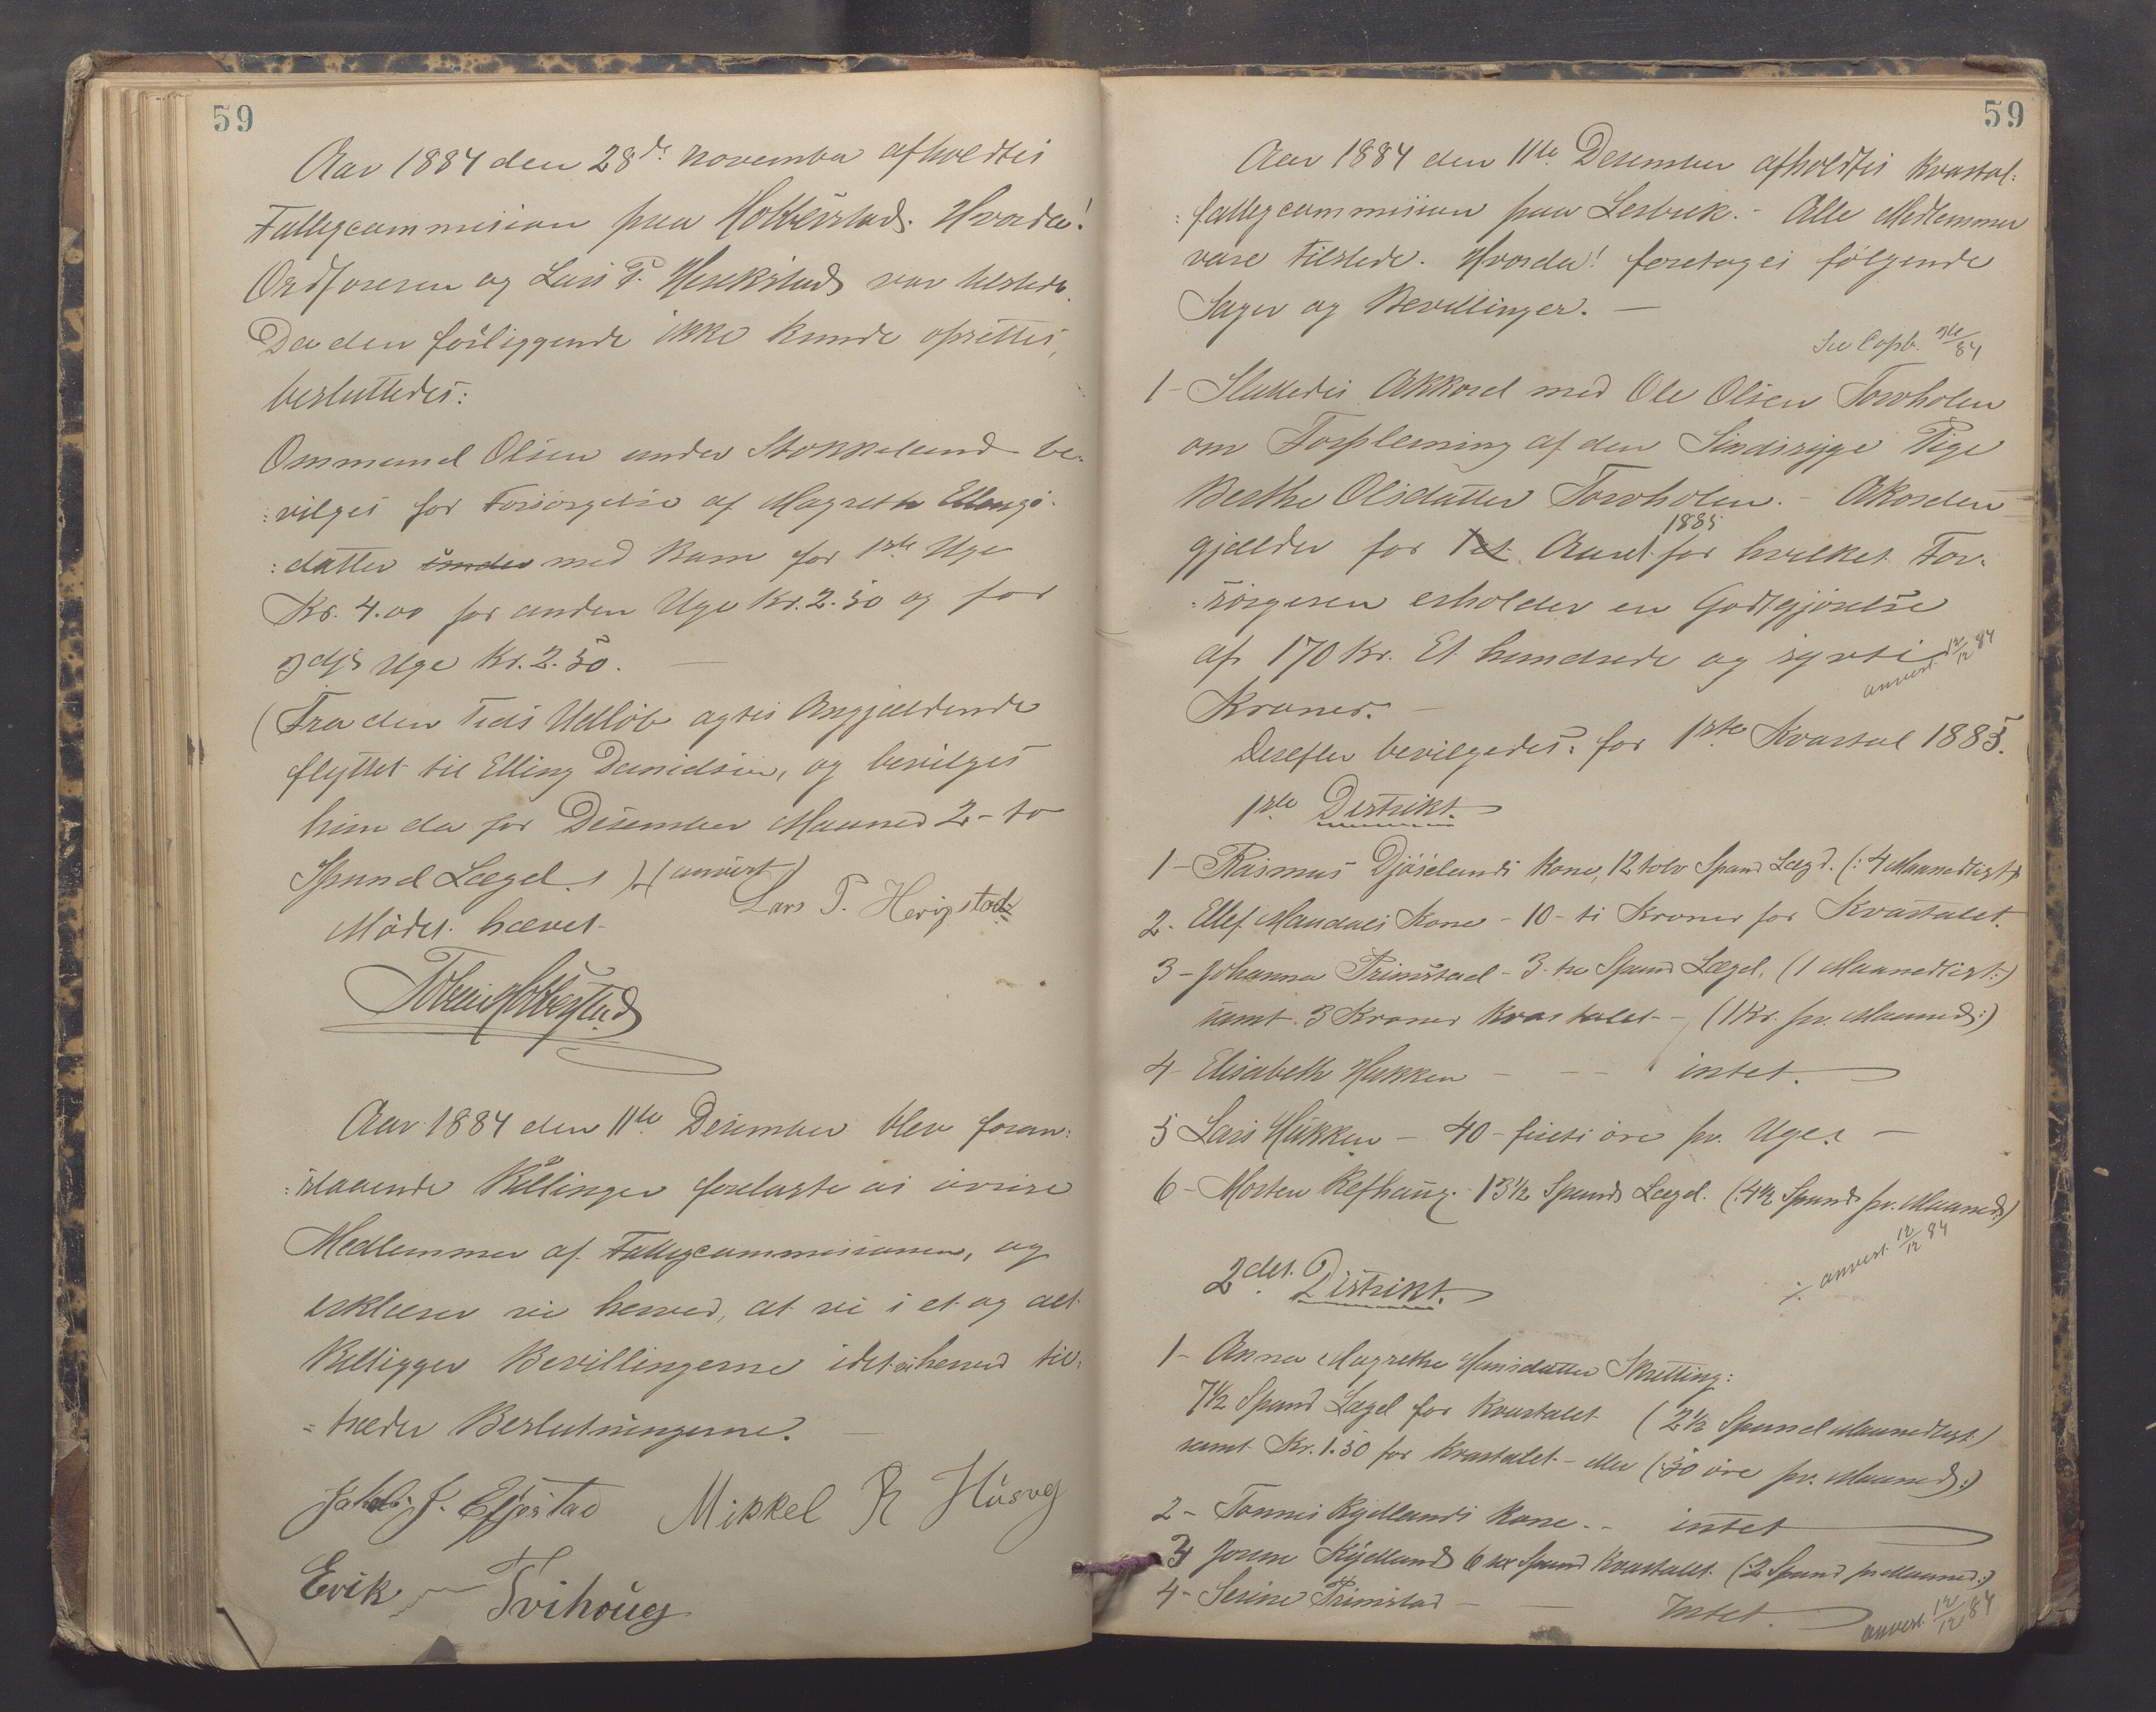 59
Aar 1884 den 28de November afholdtes
Fattigcommision paa Hobberstad. Hvorda!
Ordføreren og Lars P. Herikstad var tilstede.
Da den foreliggende ikke kunde oprettes,
besluttedes:
Ommund Olsen under Stokkeland be-
:vilges for Forsørgelse af Magrethe Ellings-
:datter under med Barn for 1ste Uge
Kr. 4.00 for anden Uge Kr. 2.50 og for
3dje Uge Kr. 2.50. —
(Fra den Tids Udløb agtes Angjældende
flyttet til Elling Danielsen, og bevilges
ham da for Desember Maaned 2 - to
Spand Lægd.) (anvist)
Lars P. Herigstad
Mødet hævet.
Tobias Hobberstad
Aar 1884 den 11te Desember blev foran:
:staaende Billinger forelagte os øvrige
Medlemmer af Fattigcommissionen, og
erklærer vi herved, at vi i et og alt
Billigger Bevillingerne idet vi herved til:
=træder Beslutningerne. —
Jakob J. Efjestad Mikkel R Husvg
Erik Tvihoug
59
Aar 1884 den 11te Desember afholdtes Kvartal:
:fattigcommission paa Lerbrek. - Alle Medlemmer
vare tilstede. Hvorda! foretoges følgende
Sager og Bevillinger. —
See Copb. 84
1 - Sluttedes Akkord med Ole Olsen Torvholen
om Forpleining af den Sindssyge Pige
Berthe Olsdatter Torvholen. - Akorden
gjælder for 1 et Aaret 1885 for hvilket For-
:sørgeren erholder en Godtgjørelse
af 170 Kr. Et hundrede og sytti
anvist 12/12 84
Kroner. —
Derefter bevilgedes: for 1ste Kvartal 1885.
1ste Distrikt.
1 - Rasmus Djøselands Kone, 12 tolv Spand Lægd. (: 4 Maanedligt)
2 - Ellef Maudals Kone - 10 - ti Kroner for Kvartalet.
3 - Johanna Trimstad - 3 - tre Spand Lægd, (1 Maanedligt:)
samt 3 Kroner Kvartalet - (1 Kr. pr. Maaned:)
4 - Elisabeth Hukken - - - intet.
5 Lars Hukken - 40 - firti øre pr. Uge. —
6 - Morten Refhaug. 13½ Spands Lægd. (: 4½ Spand pr. Maaned:)
anvist 12/12 84
2det. Distrikt.
1 - Anna Magrethe Hansdatter Skretting:
7½ Spand Lægd for Kvartalet (2½ Spand Maanedligt)
samt Kr. 1.50 for Kvartalet - eller (: 50 øre pr. Maaned:)
2 - Tønnes Kydlands Kone. - intet
3 Jorine Kydland 6 sex Spand Kvartalet. (2 Spand pr Maaned:)
4 - Serine Trimstad — — Intet.
anvist 12/12 84